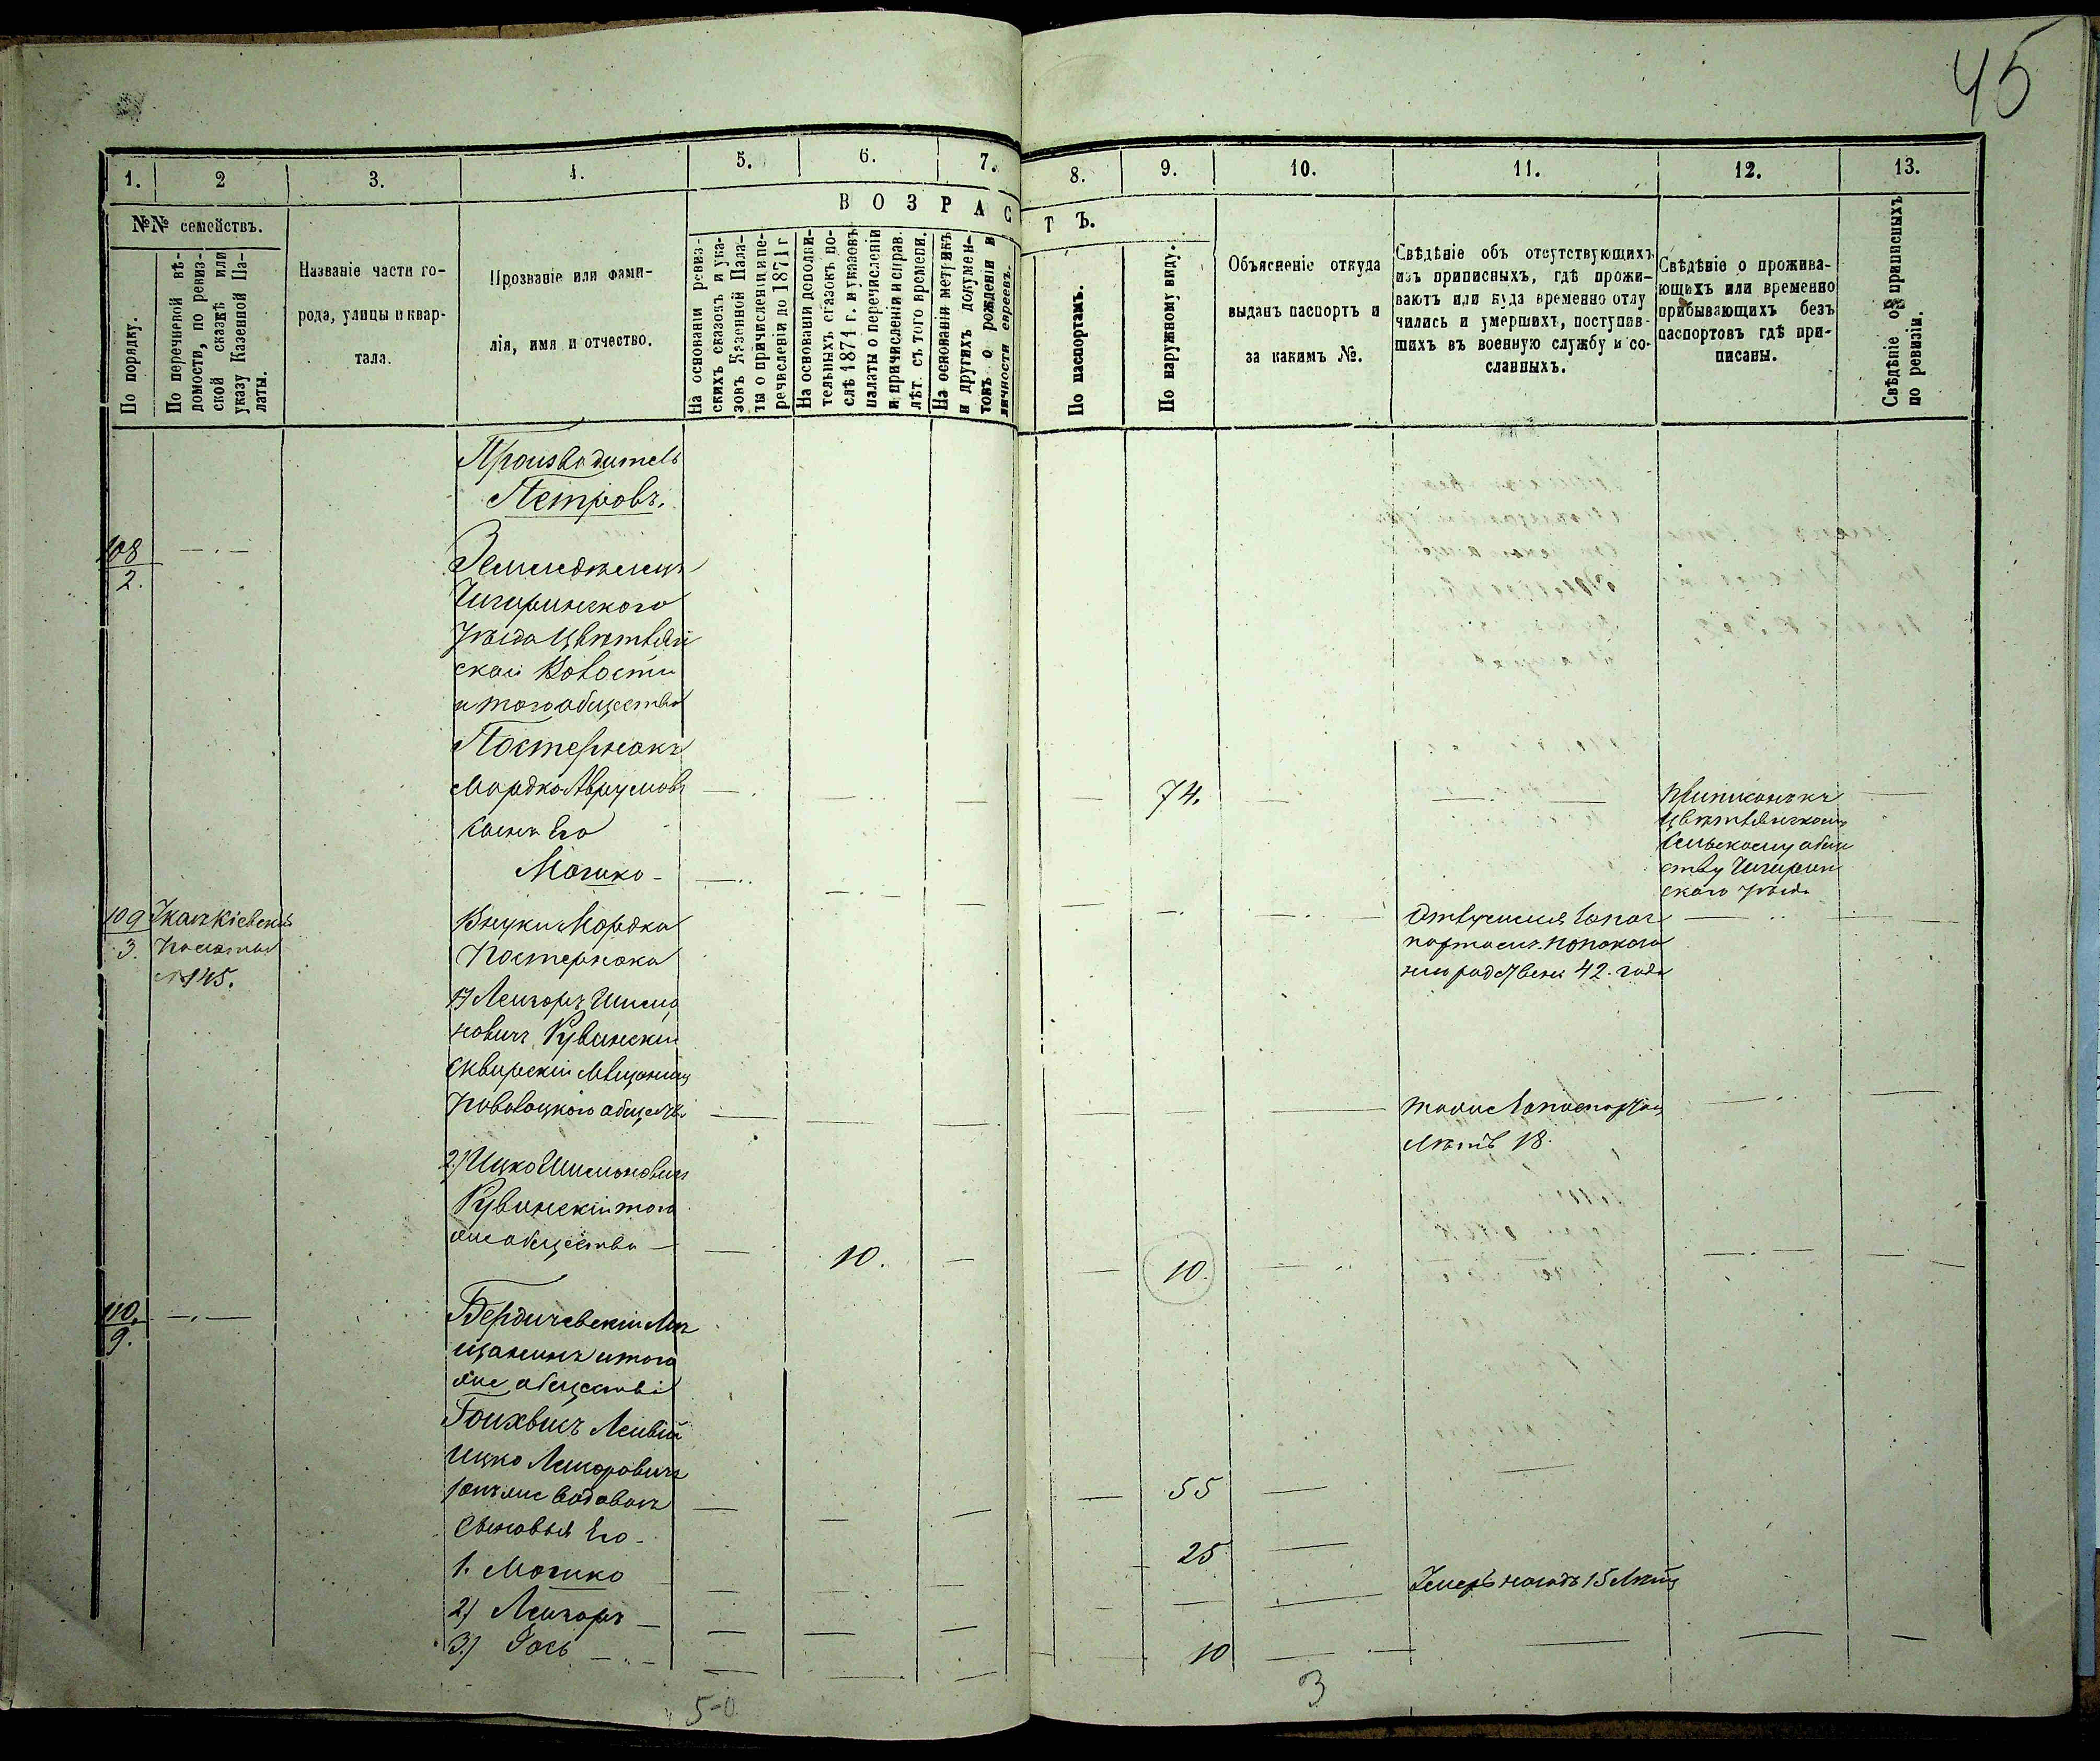 45
1.
2
3.
4.
5.
6.
7.
8.
9.
10.
11.
12.
13.
№№ семействъ.
В О З Р А С
Т Ъ.
По порядку.
По перечневой вѣ-
домости, по ревиз-
ской сказкѣ или
указу Казенной Па-
латы.
Названіе части го-
рода, улицы и квар-
тала.
Прозваніе или фами-
лія, имя и отчество.
На основаніи ревиз-
скихъ сказокъ и ука-
зовъ Казенной Пала-
ты о причисленіи и пе-
речисленіи до 1871 г
На основаніи дополни-
тельныхъ сказокъ по-
слѣ 1871 г. и указовъ
палаты о перечисленіи
и причисленіи и справ.
лѣт. съ того времени.
На основаніи метрикъ
и другихъ докумен-
товъ о рожденіи и
личности евреевъ.
По паспортамъ.
По наружному виду.
Объясненіе откуда
выданъ паспортъ и
за какимъ №.
Свѣдѣніе объ отсутствующихъ
изъ приписныхъ, гдѣ прожи-
ваютъ или куда временно отлу
чились и умершихъ, поступив-
шихъ въ военную службу и со-
сланныхъ.
Свѣдѣніе о прожива-
ющихъ или временно
прибывающихъ безъ
паспортовъ гдѣ при-
писаны.
Свѣдѣніе объ приписныхъ
по ревизіи.
Производитель
Петровъ.
108
2.
Земледѣлецъ
Чигиринскаго
Уѣзда Цвѣтвян
ской Волости
и того общества
Постернакъ
Мордко Аврумовъ
74.
Приписанъ къ
Цвѣтвянскому
Сельскому обще
ству Чигирин
скаго уѣзда
Сынъ Его
Мошко -
109
3.
Указъ Кіевской
Палаты
№ 145.
Внуки Мордка
Постернака
1) Лейзоръ Шимо
новичъ Рувинскій
Сквирскій Мѣщанинъ
Паволоцкаго общества
42. года
2) Ицко Шимоновичъ
Рувинскій того
же общества
Лѣтъ 18.
10.
10.
110.
9.
Бердичевскій Мѣ
щанинъ и того
же общества
Лейбъ
Ицко Лейзоровичъ
55
Сыновья Его -
1. Мошко
25
2) Лейзоръ
Умеръ назадъ 15 Лѣтъ
3.) Іось
10
5-0
3